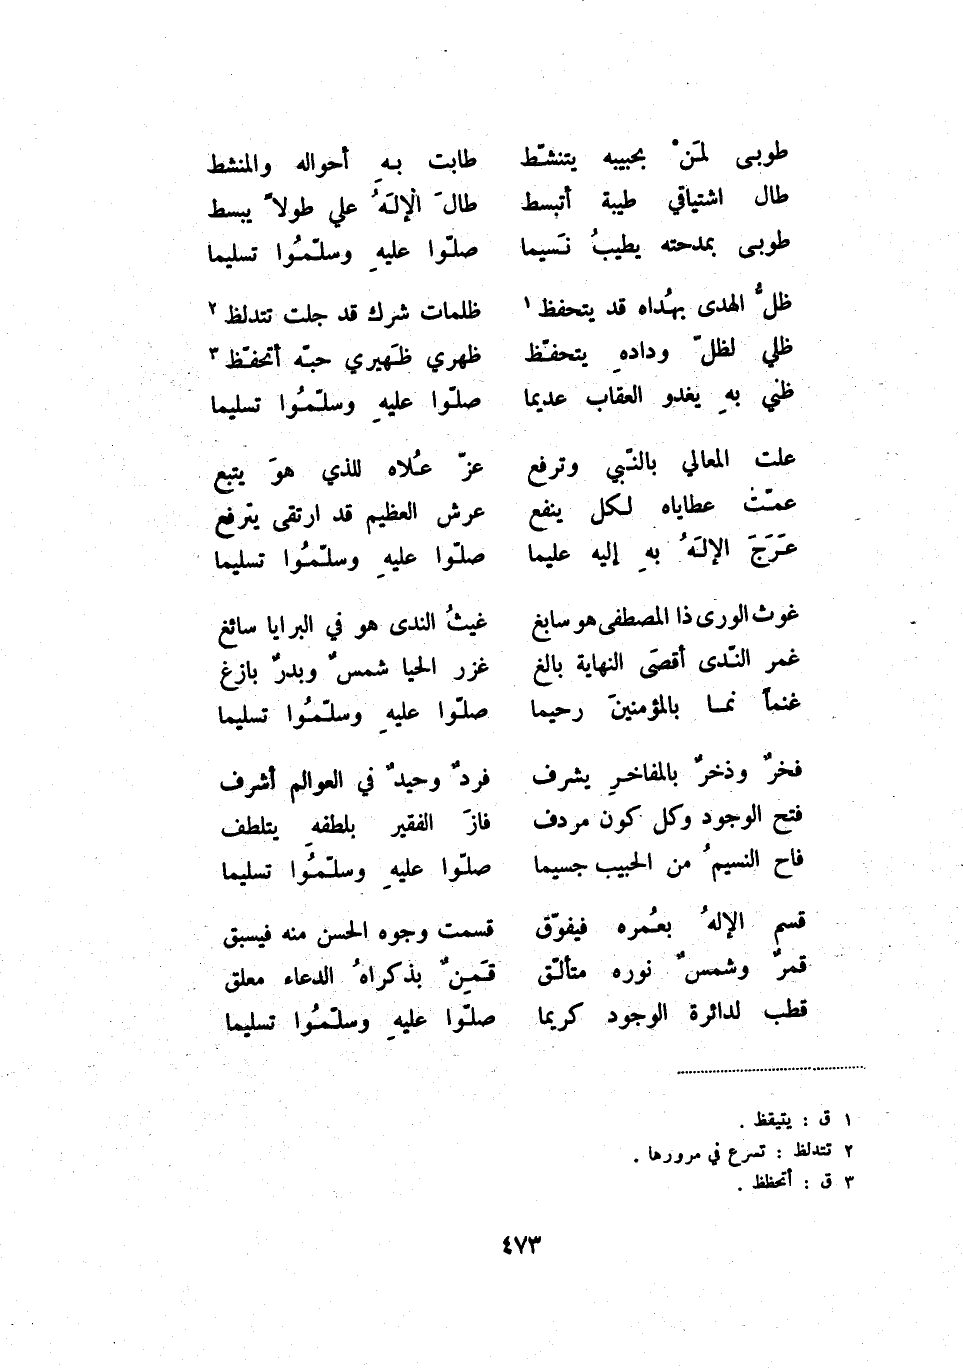 طوبى لمَنْ بحبيبه يتنشّط طابت بهِ أحواله والمنشط
طال اشتياقي طيبة أتبسط طالَ الإلَهُ علي طولاً يبسط
طوبى بمدحته يطيبُ نَسيما صلّوا عليهِ وسلّمُوا تسليما
ظلُّ الهدى بهُداه قد يتحفظ ١ ظلمات شرك قد جلت تتدلظ ٢
ظلي لظلّ ودادهِ يتحفّظ ظهري ظَهيري حبّه أتحفّظ ٣
ظني بهِ يغدو العقاب عديما صلّوا عليهِ وسلّمُوا تسليما
علت المعالي بالنّبي وترفع عزّ عُلاه للذي هوَ يتبع
عمّت عطاياه لكل ينفع عرش العظيم قد ارتقى يترفع
عَرَجَ الإلَهُ بهِ إليه عليما صلّوا عليهِ وسلّمُوا تسليما
غوث الورى ذا المصطفى هو سابغ غيثُ الندى هو في البرايا سائغ
غمر النّدى أقصَى النهاية بالغ غزر الحيا شمسٌ وبدرٌ بازغ
غنماً نما بالمؤمنينَ رحيما صلّوا عليهِ وسلّمُوا تسليما
فخرٌ وذخرٌ بالمفاخرِ يشرف فردٌ وحيدٌ في العوالم أشرف
فتح الوجود وكل كون مردف فازَ الفقير بلطفهِ يتلطف
فاح النسيمُ من الحبيب جسيما صلّوا عليهِ وسلّمُوا تسليما
قسم الإلهُ بعُمره فيفوّق قسمت وجوه الحسن منه فيسبق
قمرٌ وشمسٌ نوره متألّق قَمِنٌ بذكراهُ الدعاء معلق
قطب لدائرة الوجود كريما صلّوا عليهِ وسلّمُوا تسليما
١ ق : يتيقظ .
٢ تتدلظ : تسرع في مرورها .
٣ ق : أتحظظ .
٤٧٣